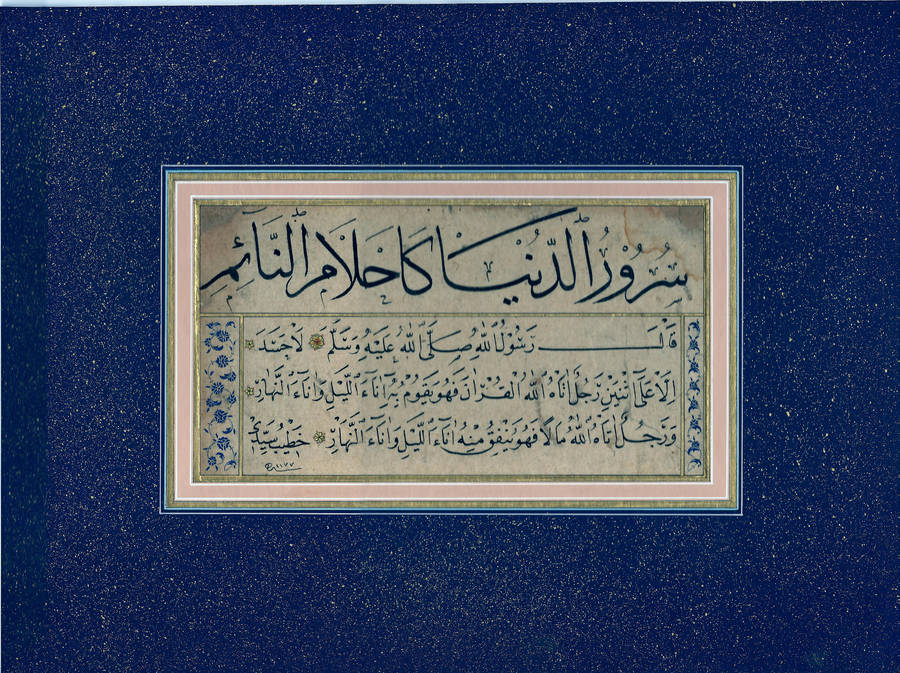 سُرُوْرُ الدُّنْيَا كَاَحْلَامِ النَّآئِمِ
قَالَ رَسُوْلُ اللهِ صَلَّى اللهُ عَلَيْهِ وَسَلَّمَ لَا حَسَدَ
اِلَّا عَلَى اثْنَيْنِ رَجُلٌ اٰتَاهُ اللهُ الْقُرْاٰنَ فَهُوَ يَقُوْمُ بِهِ اٰنَآءَ الَّيْلِ وَاٰنَآءَ النَّهَارِ
وَرَجُلٌ اٰتَاهُ اللهُ مَالًا فَهُوَ يُنْفِقُ مِنْهُ اٰنَآءَ الَّيْلِ وَاٰنَآءَ النَّهَارِ